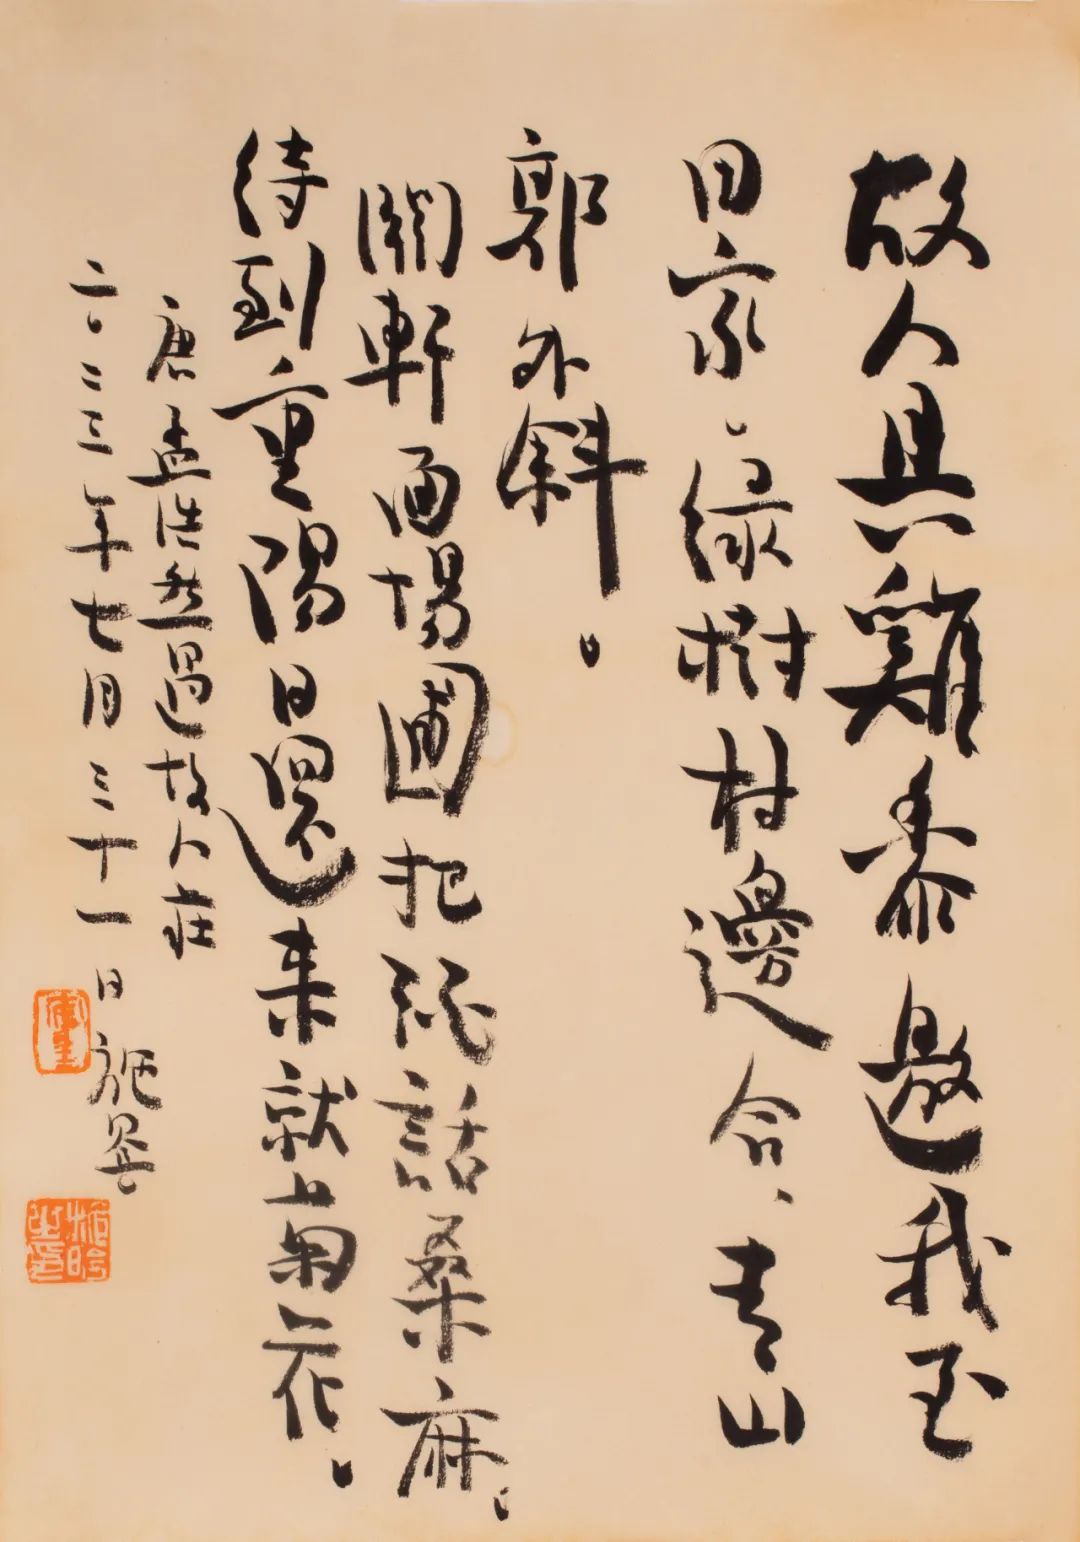 故人具雞黍邀我至
田家、綠樹村邊合、青山
郭外斜。
開軒面場圃把酒話桑麻。
待到重陽日還來就菊花。
唐孟浩然過故人莊
二〇二三年七月三十一日施